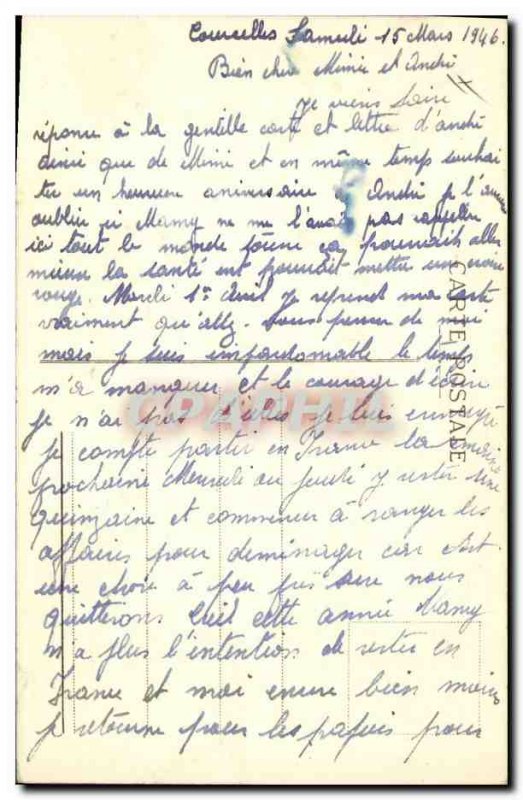 Courcelles Samedi 15 Mars 1946.
Bien cher Mimie et André
Je viens faire
réponse à la gentille carte et lettre d'andré
ainsi que de Mimi et en même temps souhai
ter un heureux aniversaire André je l'
oublié si Mamy ne me l'avait pas rappeller
ici tout le monde ça pourrais aller
mieux la santé on pourrait mettre une croix
rouge. Mardi 1er Avril je reprend ma carte
vraiment qu'allez-vous penser de moi
mais je suis impardonnable le temps
m'a manquer et le courage d'écrire
je n'ai pas
je compte partir en France la semaine
prochaine Mercredi ou jeudi y rester une
quinzaine et commencer à ranger les
affaires pour deménager car c'est
une chose à peu près sur nous
quitterons cette année Mamy
n'a plus l'intention de rester en
France et moi encore bien moins
je retourne pour les pour
CARTE POSTALE
CPAPHIL